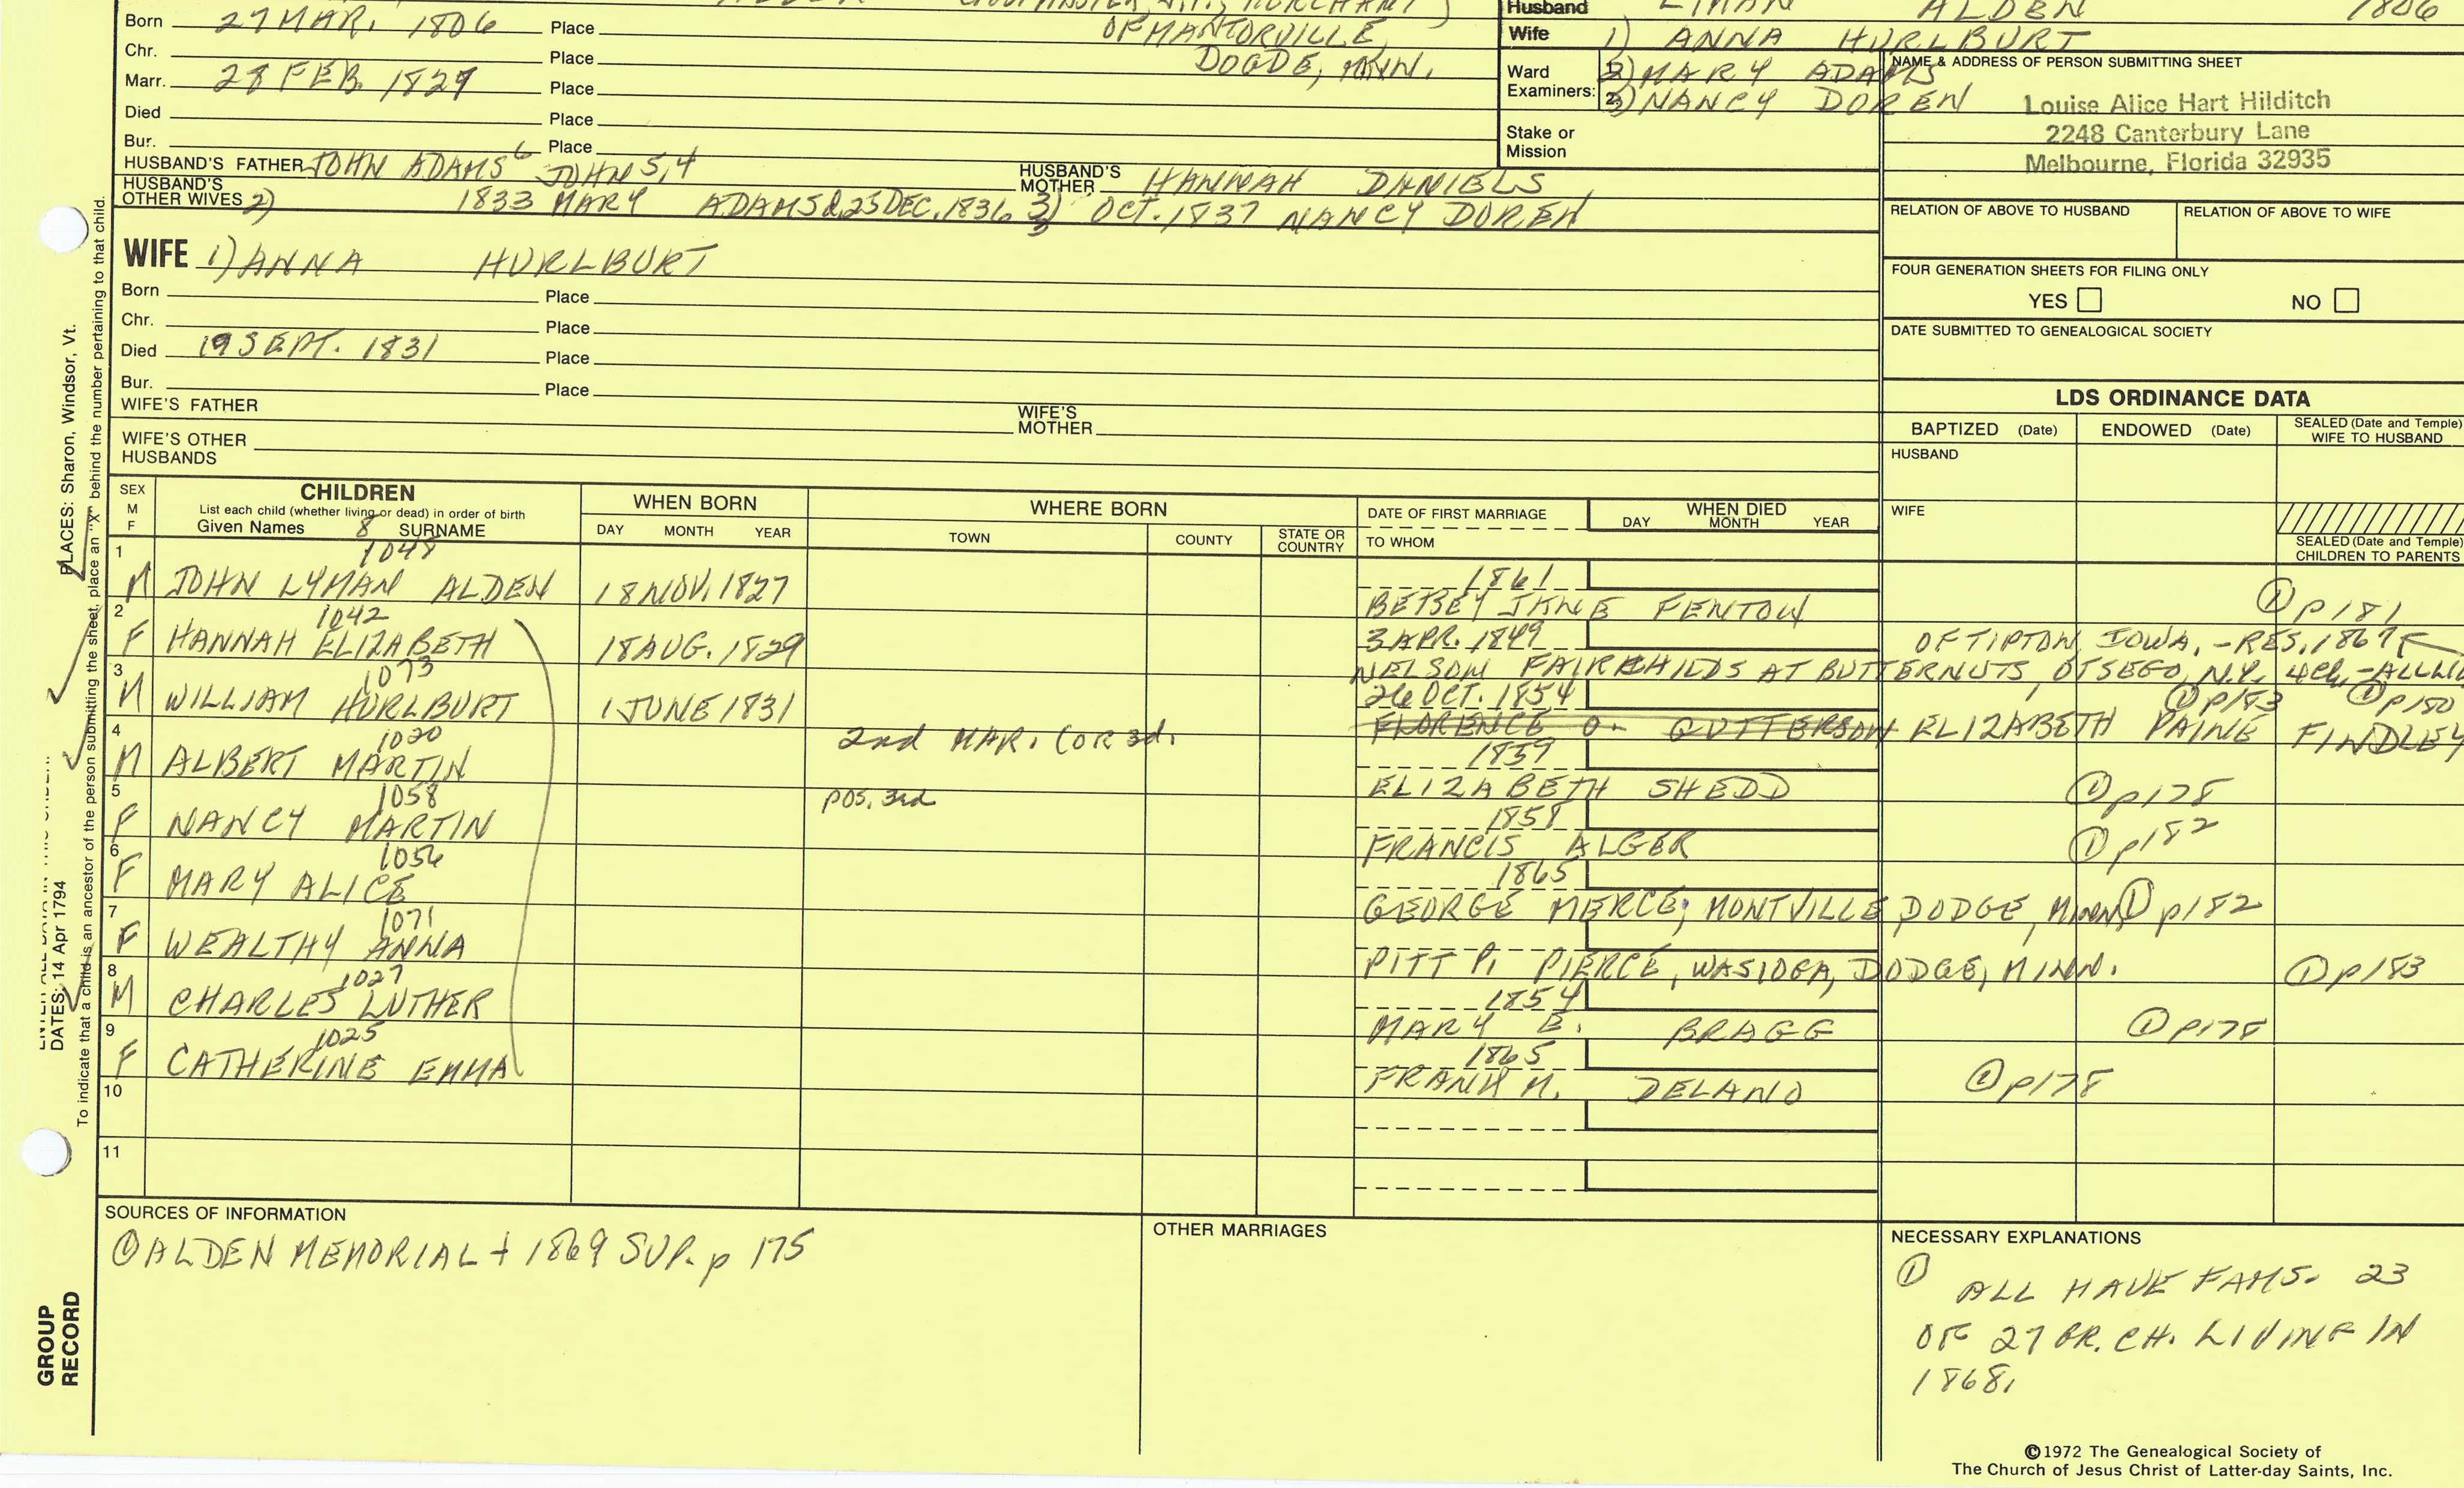 Husband LYMAN ALDEN 1806
Born 27 MAR. 1806 Place OF MANTORVILLE,
Wife 1) ANNA HURLBURT
Chr. Place DOGDE, MINN.
Marr. 28 FEB. 1827 Place
Ward Examiners: 2) MARY ADAMS
3) NANCY DOREN
NAME & ADDRESS OF PERSON SUBMITTING SHEET
Louise Alice Hart Hilditch
2248 Canterbury Lane
Melbourne, Florida 32935
Died Place
Bur. Place
Stake or Mission
HUSBAND'S FATHER JOHN ADAMS 6 JOHN 5,4
HUSBAND'S MOTHER HANNAH DANIELS
HUSBAND'S OTHER WIVES 2) 1833 MARY ADAMS d. 25 DEC. 1836 3) OCT. 1837 NANCY DOREN
RELATION OF ABOVE TO HUSBAND RELATION OF ABOVE TO WIFE
WIFE 1) ANNA HURLBURT
Born Place
Chr. Place
Died 19 SEPT. 1831 Place
Bur. Place
WIFE'S FATHER WIFE'S MOTHER
WIFE'S OTHER HUSBANDS
FOUR GENERATION SHEETS FOR FILING ONLY
YES NO
DATE SUBMITTED TO GENEALOGICAL SOCIETY
LDS ORDINANCE DATA
BAPTIZED (Date) ENDOWED (Date) SEALED (Date and Temple) WIFE TO HUSBAND
HUSBAND
WIFE
SEALED (Date and Temple) CHILDREN TO PARENTS
SEX M F
CHILDREN
List each child (whether living or dead) in order of birth
Given Names 8 SURNAME
WHEN BORN
DAY MONTH YEAR
WHERE BORN
TOWN COUNTY STATE OR COUNTRY
DATE OF FIRST MARRIAGE
TO WHOM
WHEN DIED
DAY MONTH YEAR
1 1048 1861
M JOHN LYMAN ALDEN 18 NOV. 1827 BETSEY JANE FENTON ① p181
2 1042 3 APR. 1849 OF TIPTON, IOWA, -RES. 1867
F HANNAH ELIZABETH 18 AUG. 1829 NELSON FAIRCHILDS AT BUTTERNUTS, OTSEGO, N.Y. 4 ch. -ALL
3 1073 26 OCT. 1854 ① p183 ① p180
M WILLIAM HURLBURT 1 JUNE 1831 FLORENCE O. GUTTERSON ELIZABETH PAINE FINDLEY
4 1020 2nd MAR. (OR 3d. 1859
M ALBERT MARTIN ELIZABETH SHEDD ① p178
5 1058 POS. 3rd 1858
F NANCY MARTIN FRANCIS ALGER ① p182
6 1056 1865
F MARY ALICE GEORGE MERCE; MONTVILLE, DODGE, MINN ① p182
7 1071
F WEALTHY ANNA PITT P. PIERCE, WASIOGA, DODGE, MINN. ① p183
8 1027 1854
M CHARLES LUTHER MARY E. BRAGG ① p178
9 1025 1865
F CATHERINE EMMA FRANK M. DELANO ① p178
10
11
SOURCES OF INFORMATION
① ALDEN MEMORIAL + 1869 SUP. p 175
OTHER MARRIAGES
NECESSARY EXPLANATIONS
① ALL HAVE FAMS. 23
OF 27 GR. CH. LIVING IN
1868.
©1972 The Genealogical Society of
The Church of Jesus Christ of Latter-day Saints, Inc.
PLACES: Sharon, Windsor, Vt.
DATES: 14 Apr 1794
To indicate that a child is an ancestor of the person submitting the sheet, place an "X" behind the number pertaining to that child.
GROUP
RECORD